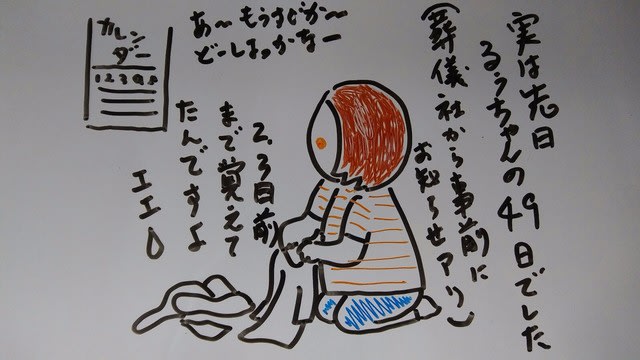 実は先日
るぅちゃんの49日でした
(葬儀社から事前に
お知らせアリ)
あ〜もうすぐか〜
どーしよっかなー
カレン
ダー
12345
2,3日前
まで覚えて
たんですよ
エエ